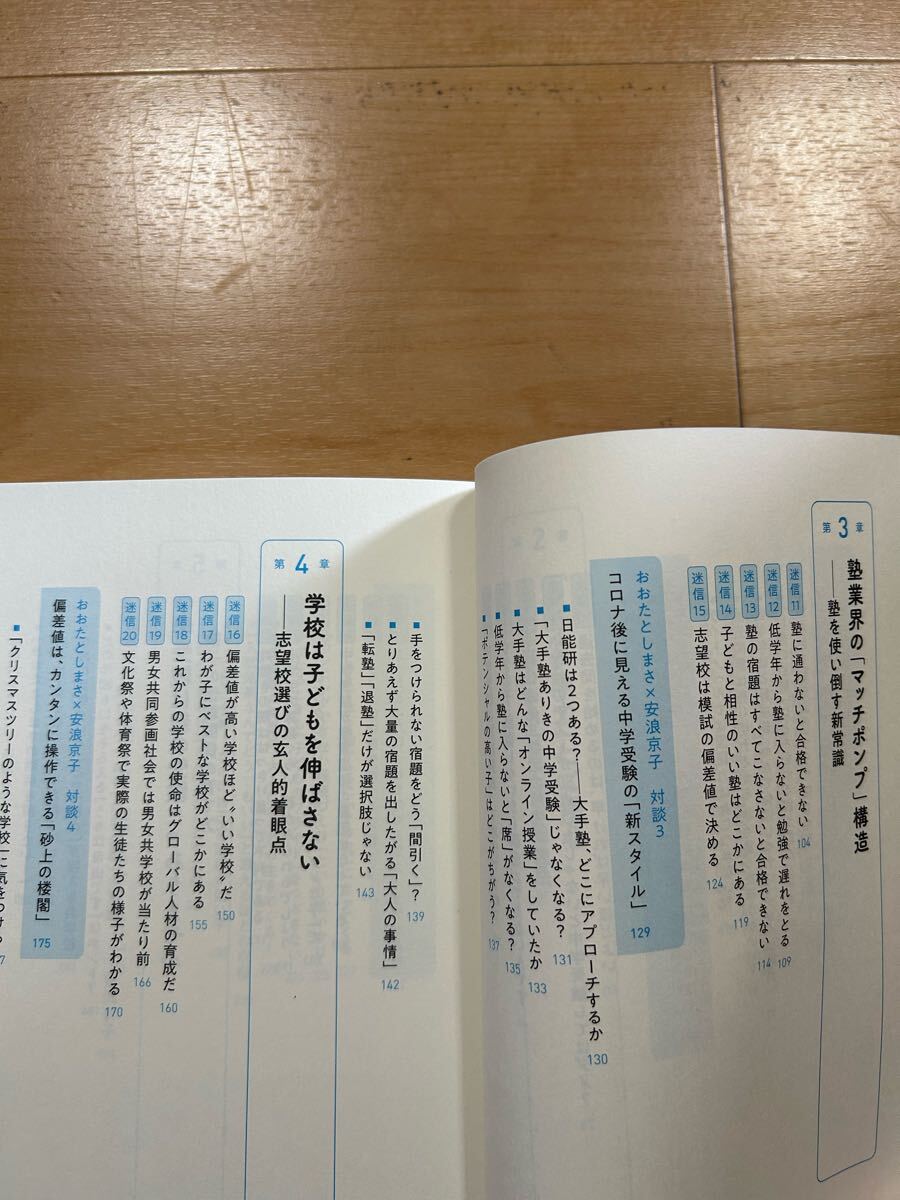 第3章
塾業界の「マッチポンプ」構造
――塾を使い倒す新常識
迷信11 塾に通わないと合格できない 104
迷信12 低学年から塾に入らないと勉強で遅れをとる 109
迷信13 塾の宿題はすべてこなさないと合格できない 114
迷信14 子どもと相性のいい塾はどこかにある 119
迷信15 志望校は模試の偏差値で決める 124
おおたとしまさ×安浪京子 対談3
コロナ後に見える中学受験の「新スタイル」 129
■日能研は2つある?――大手塾、どこにアプローチするか 130
■「大手塾ありきの中学受験」じゃなくなる? 131
■大手塾はどんな「オンライン授業」をしていたか 133
■低学年から塾に入らないと「席」がなくなる? 135
■「ポテンシャルの高い子」はどこがちがう? 137
■手をつけられない宿題をどう「間引く」? 139
■とりあえず大量の宿題を出したがる「大人の事情」 142
■「転塾」「退塾」だけが選択肢じゃない 143
第4章
学校は子どもを伸ばさない
――志望校選びの玄人的着眼点
迷信16 偏差値が高い学校ほど〝いい学校〟だ 150
迷信17 わが子にベストな学校がどこかにある 155
迷信18 これからの学校の使命はグローバル人材の育成だ 160
迷信19 男女共同参画社会では男女共学校が当たり前 166
迷信20 文化祭や体育祭で実際の生徒たちの様子がわかる 170
おおたとしまさ×安浪京子 対談4
偏差値は、カンタンに操作できる「砂上の楼閣」 175
■「クリスマスツリーのような学校」に気をつけろ